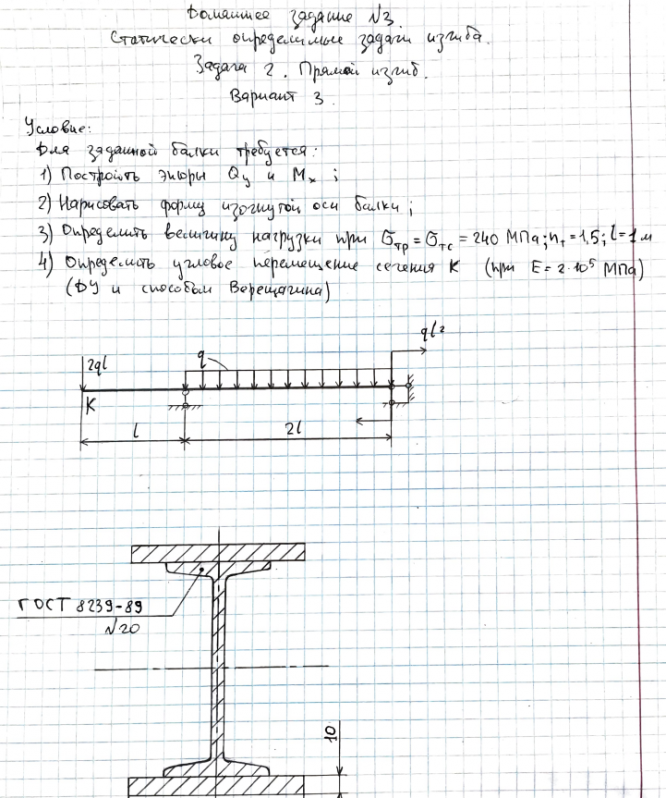 Домашнее задание №3.
Статически определимые задачи изгиба.
Задача 2. Прямой изгиб.
Вариант 3
Условие:
Для заданной балки требуется:
1) Построить эпюры Qy и Mx;
2) Нарисовать форму изогнутой оси балки;
3) Определить величину нагрузки при σтр = σтс = 240 МПа; nт = 1,5; l = 1 м
4) Определить угловое перемещение сечения К (при E = 2·10⁵ МПа)
(ДУ и способом Верещагина)
ql²
2ql
q
K
l
2l
ГОСТ 8239-89
№20
10